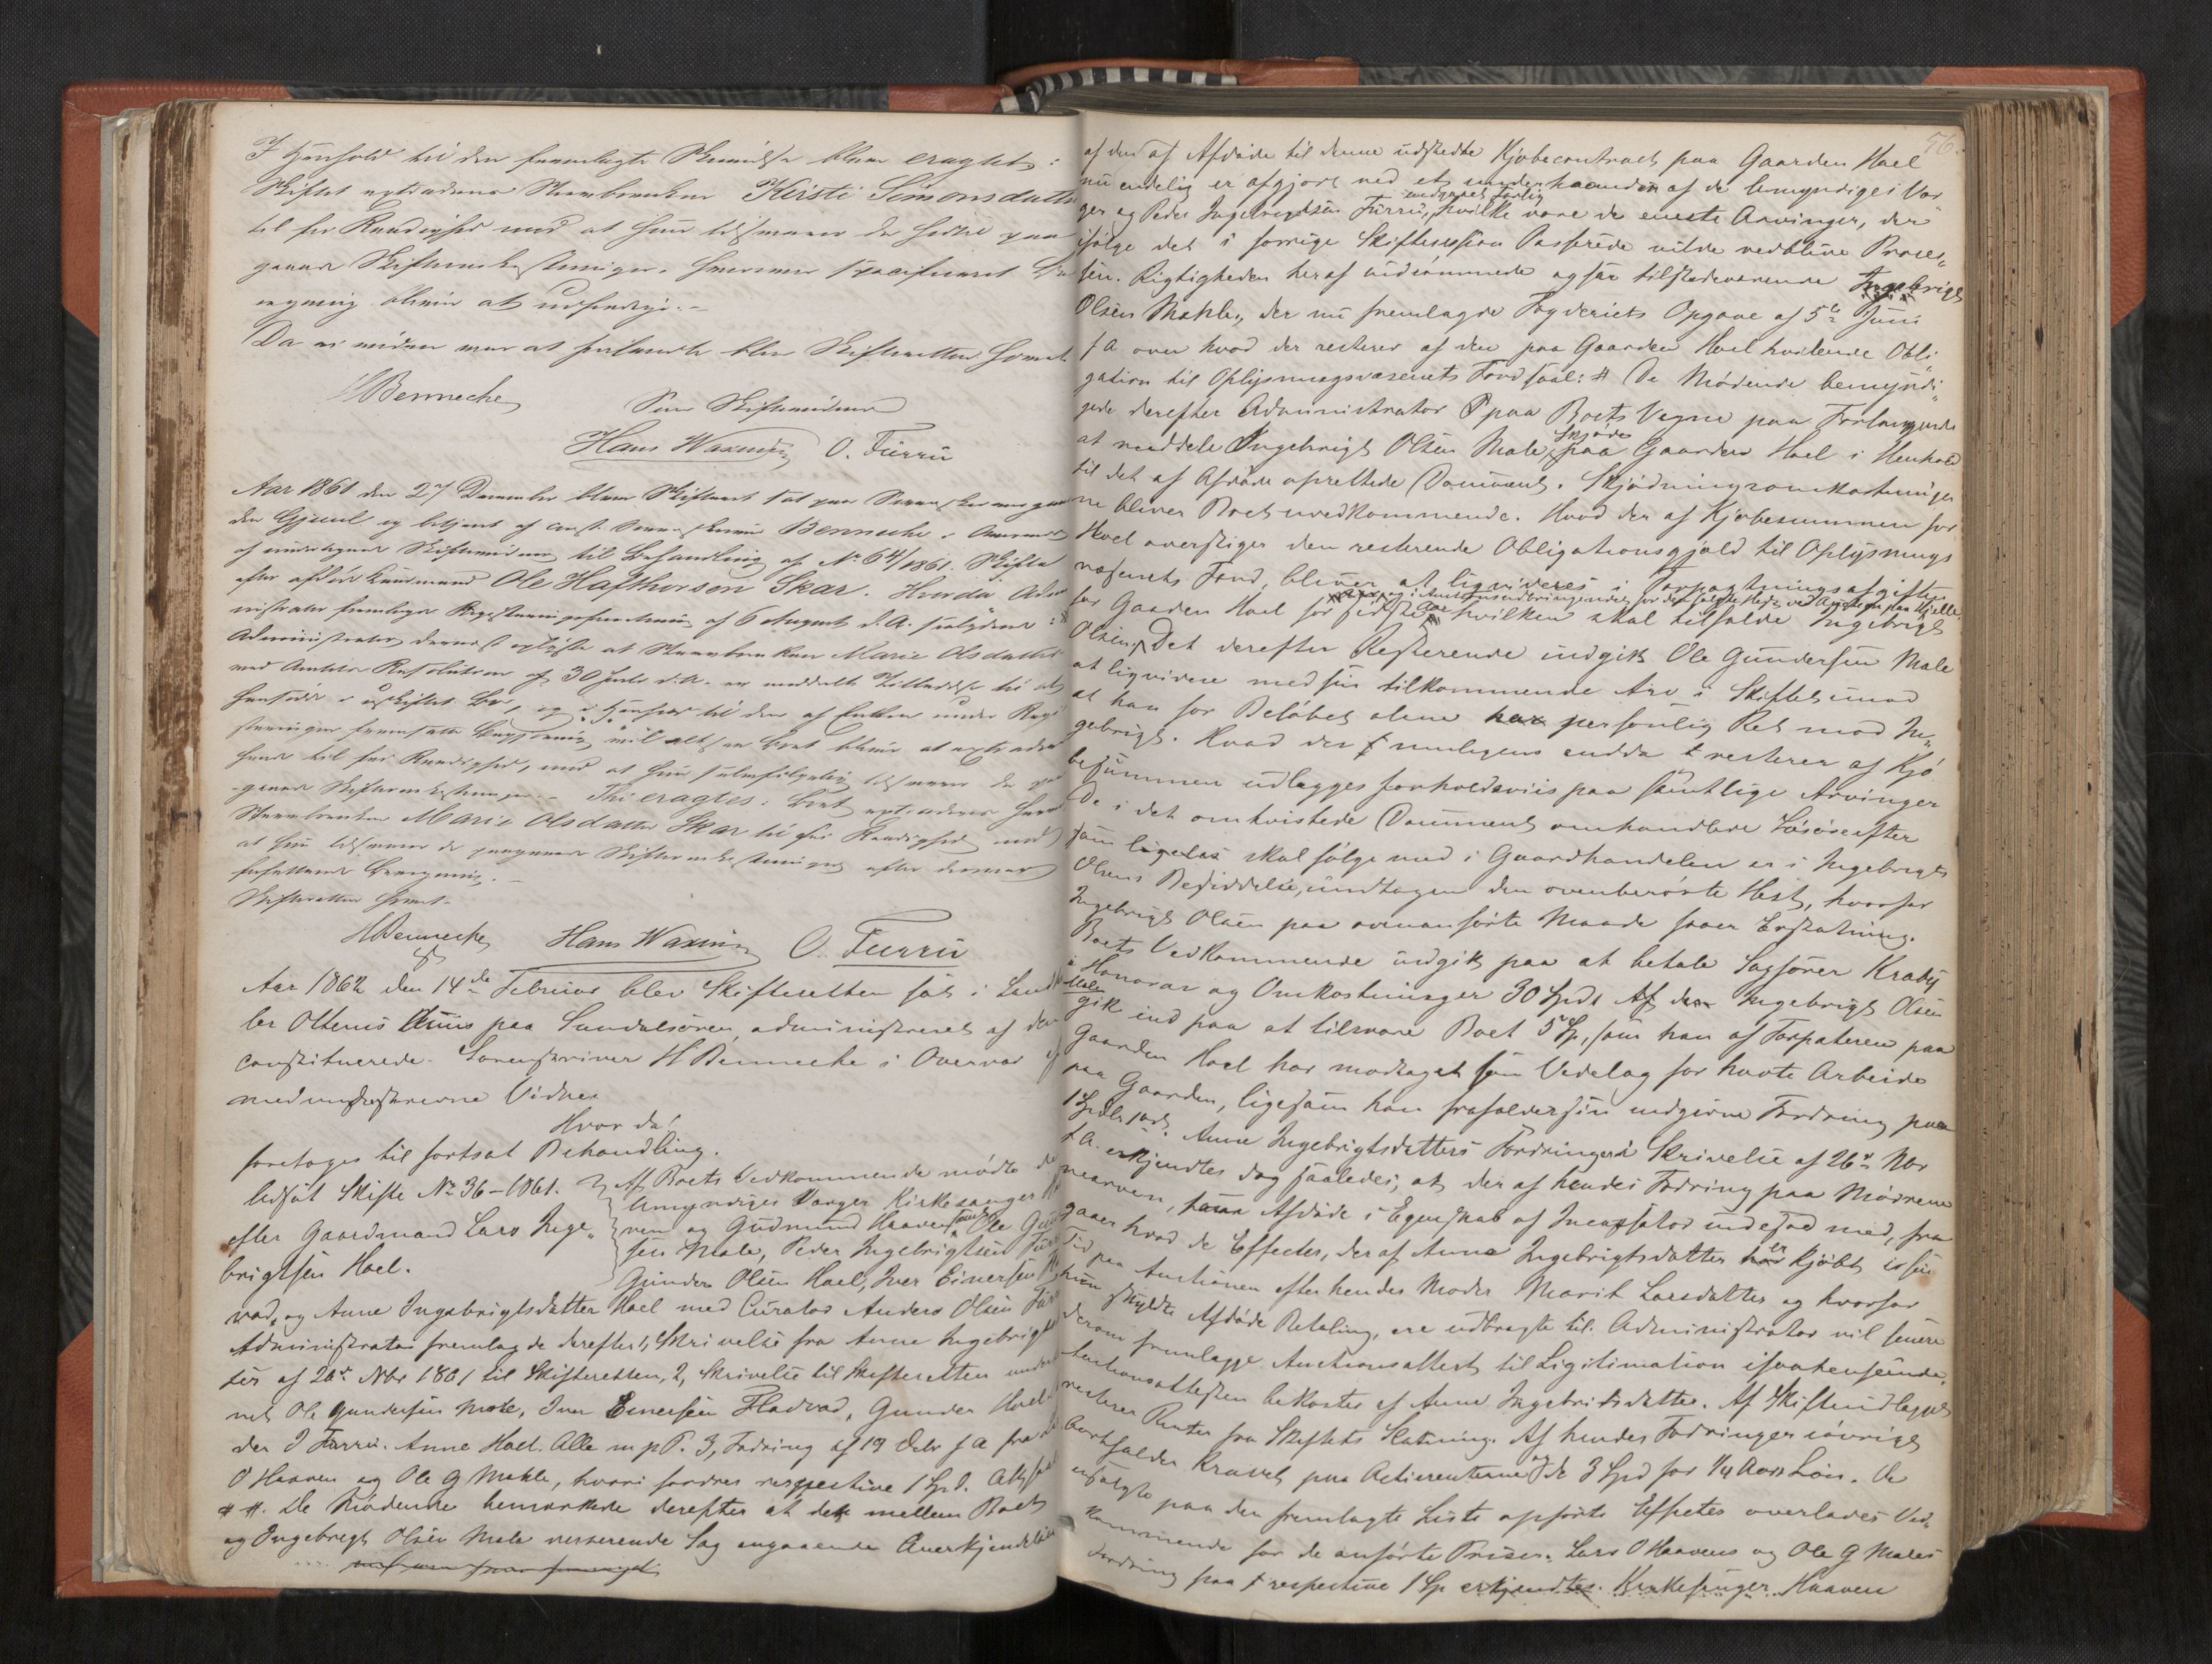 I Henhold til den fremlagte Skrivelse blev eragtet:
Skiftet extraderes Stervboenken Kirsti Simonsdatter
til fri Raadighed mod at hun tilsvarer de hidtil paa
gaaede Skifteomkostninger, hvorover specificeret Be
regning bliver at udfærdige.-
Da ei videre var at foretage blev Skifteretten hævet
HBennecke
Som Skiftevidner
Hans Waxvig O. Furru
Aar 1861 den 27 December blev Skifteret sat paa Sorenskrivergaar
den Gjøul og betjent af const. Sorenskriver Bennecke i Overvær
af undertegnede Skiftevidner til Behandling af No 64/1861. Skifte
efter afdøde Huusmand Ole Hafthorsøn Skar. Hvorda Admi
nistrator fremlagde Registreringsforretning af 6 August d.A. saalydende: #
Administrator dernæst oplyste at Stervboenken Marie Olsdatter
ved Amtets Resolution af 30 d.A. er meddelt Tilladelse til at
hensidde i uskiftet Bo, og i Henhold til den af Enken under Regi
streringen fremsatte Begjæring vil altsaa Boet blive at extradere
hende til fri Raadighed, mod at hun selvfølgelig tilsvarer de paa
gaaede Skifteomkostninger.- Thi eragtes: Boet extraderes
Stervboenken Marie Olsdatter Skar til fri Raadighed mod
at hun tilsvarer de paagaaede Skifteomkostninger efter derover
forfattende Beregning.-
Skifteretten hævet-
HBennecke Hans Waxvig O. Furru
Aar 1862 den 14de Februar blev Skifteretten sat i Land
ler Oltenis Huus paa Sundalsøren administreret af den
constituerede Sorenskriver H Bennecke i Overvær af
medunderskrevne Vidner
Hvor da!
foretoges til fortsat Behandling.
Udsat Skifte No 36-1861. Af Boets Vedkommende mødte de
efter Gaardmand Lars Inge„ Umyndiges Værger Kirkesanger
brigtsen Hoel. ven og Gudmund Haaven samt Ole Gun
sen Male, Peder Ingebrigtsen Fur
Gunder Olsen Hoel, Iver Einersen
vad, og Anne Ingebrigtsdatter Hoel med Curator Anders Olsen Fur
Administrator fremlagde derefter 1, Skrivelse fra Anne Ingebrigtsdat
ter af 26de Nbr 1861 til Skifteretten, 2, Skrivelse til Skifteretten under
net Ole Gundersen Male, Iver Einersen Fladvad, Gunder Hoel
der I Furru. Anne Hoel. Alle m p P. 3, Fodring af 19 Debr f A fra L
O Haaven og Ole G Mahle, hvori fordres respective 1 Spd.
# #. De Mødende bemærkede derefter at den mellem Boet
og Ingebrigt Olsen Male verserende Sag angaaende Anerkjendelsen
76.
af den af Afdøde til denne udstedte Kjøbecontract paa Gaarden Hoel
nu endelig er afgjort ved et underhaanden af de Umyndiges Vær
ger og Peder Ingebrigtsen Furru, indgaaet Forlig hvilke vare de eneste Arvinger, der
ifølge det i forrige Skiftesession Passerede vilde vedblive Proces„
sen. Rigtigheden heraf vidrømmede ogsaa tilstedeværende Ingebrigt
Olsen Mahle, der nu fremlagde Fogderiets Opgave af 5te Juni
f A over hvad der resterer af den paa Gaarden Hoel heftende Obli
gation til Oplysningsvæsenets Fond saal: # De Mødende bemyndi„
gede derefter Administrator paa Boets Vegne paa Forlangende
at meddele Ingebrigt Olsen Male Skjøde paa Gaarden Hoel i Henhold
til det af Afdøde oprettede Document. Skjødningsomkostninger
ne bliver Boet uvedkommende. Hvad der af Kjøbesummen for
Hoel overstiger den resterende Obligationsgjæld til Oplysnings
væsenets Fond, bliver at liqvideres i Forpagtningsafgiften
for Gaarden Hoel for sidste Aar hvilken skal tilfalde Ingebrigt
Olsen. Det derefter Resterende indgik Ole Gundersen Male
at liqvidere med sin tilkommende Arv i Skiftet imod
at han for Beløbet alene har personlig Ret mod In„
gebrigt. Hvad der muligens endda resterer af Kjø
besummen udlægges forholdsviis paa samtlige Arvinger
De i det omtvistede Document omhandlede Løsøreeffter
som ligeledes skal følge med i Gaardhandelen er i Ingebrigt
Olsens Besiddelse, undtagen den ovenberørte Hest, hvorfor
Ingebrigt Olsen paa ovenanførte Maade faaer Erstatning.
Boets Vedkommende indgik paa at betale Sagfører Kraby
i Honorar og Omkostninger 30 Spd. Af den Ingebrigt Olsen
Male gik ind paa at tilsvare Boet 5 Sp, som han af Forpateren paa
Gaarden Hoel har modtaget som Vederlag for havte Arbeide
paa Gaarden, ligesom han frafalder sin indgivne Fordring paa
1 Spdlr. Anne Ingebrigtsdatters Fordringer i Skrivelse af 26de Nbr
f.A. erkjendtes dog saaledes, at der af hendes Fodring paa Mødrene
nearven, som Afdøde i Egenskab af Incassator indestod med, fra
gaaer hvad de Effecter, der af Anne Ingebrigtsdatter er kjøbt i sin
Tid paa Auctionen efter hendes Moder Marit Larsdatter og hvorfor
hun skyldte Afdøde Betaling, ere udbragte til. Administrator vil senere
derom fremlægge Auctionsattest til Legitimation isaahenseende.
Auctionsattesten bekostes af Anne Ingebritsdatter. Af Skifteudlægget
resterer Renter fra Skiftets Slutning. Af hendes Fodringer iøvrigt
bortfalder Kravet paa Actierenterne og de 3 Spd for 1/4 Aars Løn. De
usolgte paa den fremlagte Liste opførte Effeter overlades Ved„
kommende for de anførte Priser. Lars O Haavens og Ole G Males
Fordring paa respective 1 Sp erkjendtes. Kirkesanger Haaven